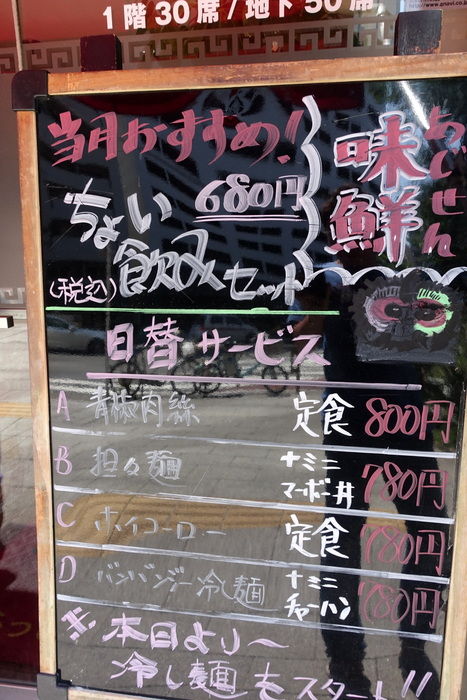 1階30席/地下50席
当月おすすめ!
味鮮
あじせん
ちょい
680円
飲みセット
(税込)
日替サービス
A 青椒肉絲 定食 800円
B 担々麺 +ミニマーボー丼 780円
C ホイコーロー 定食 780円
D バンバンジー冷し麺 +ミニチャーハン 780円
本日より〜
冷し麺もスタート!!